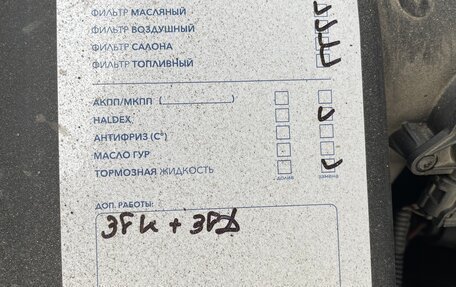 ФИЛЬТР МАСЛЯНЫЙ
ФИЛЬТР ВОЗДУШНЫЙ
ФИЛЬТР САЛОНА
ФИЛЬТР ТОПЛИВНЫЙ
АКПП/МКПП (
HALDEX
АНТИФРИЗ (С°)
МАСЛО ГУР
ТОРМОЗНАЯ ЖИДКОСТЬ
долив замена
ДОП. РАБОТЫ: